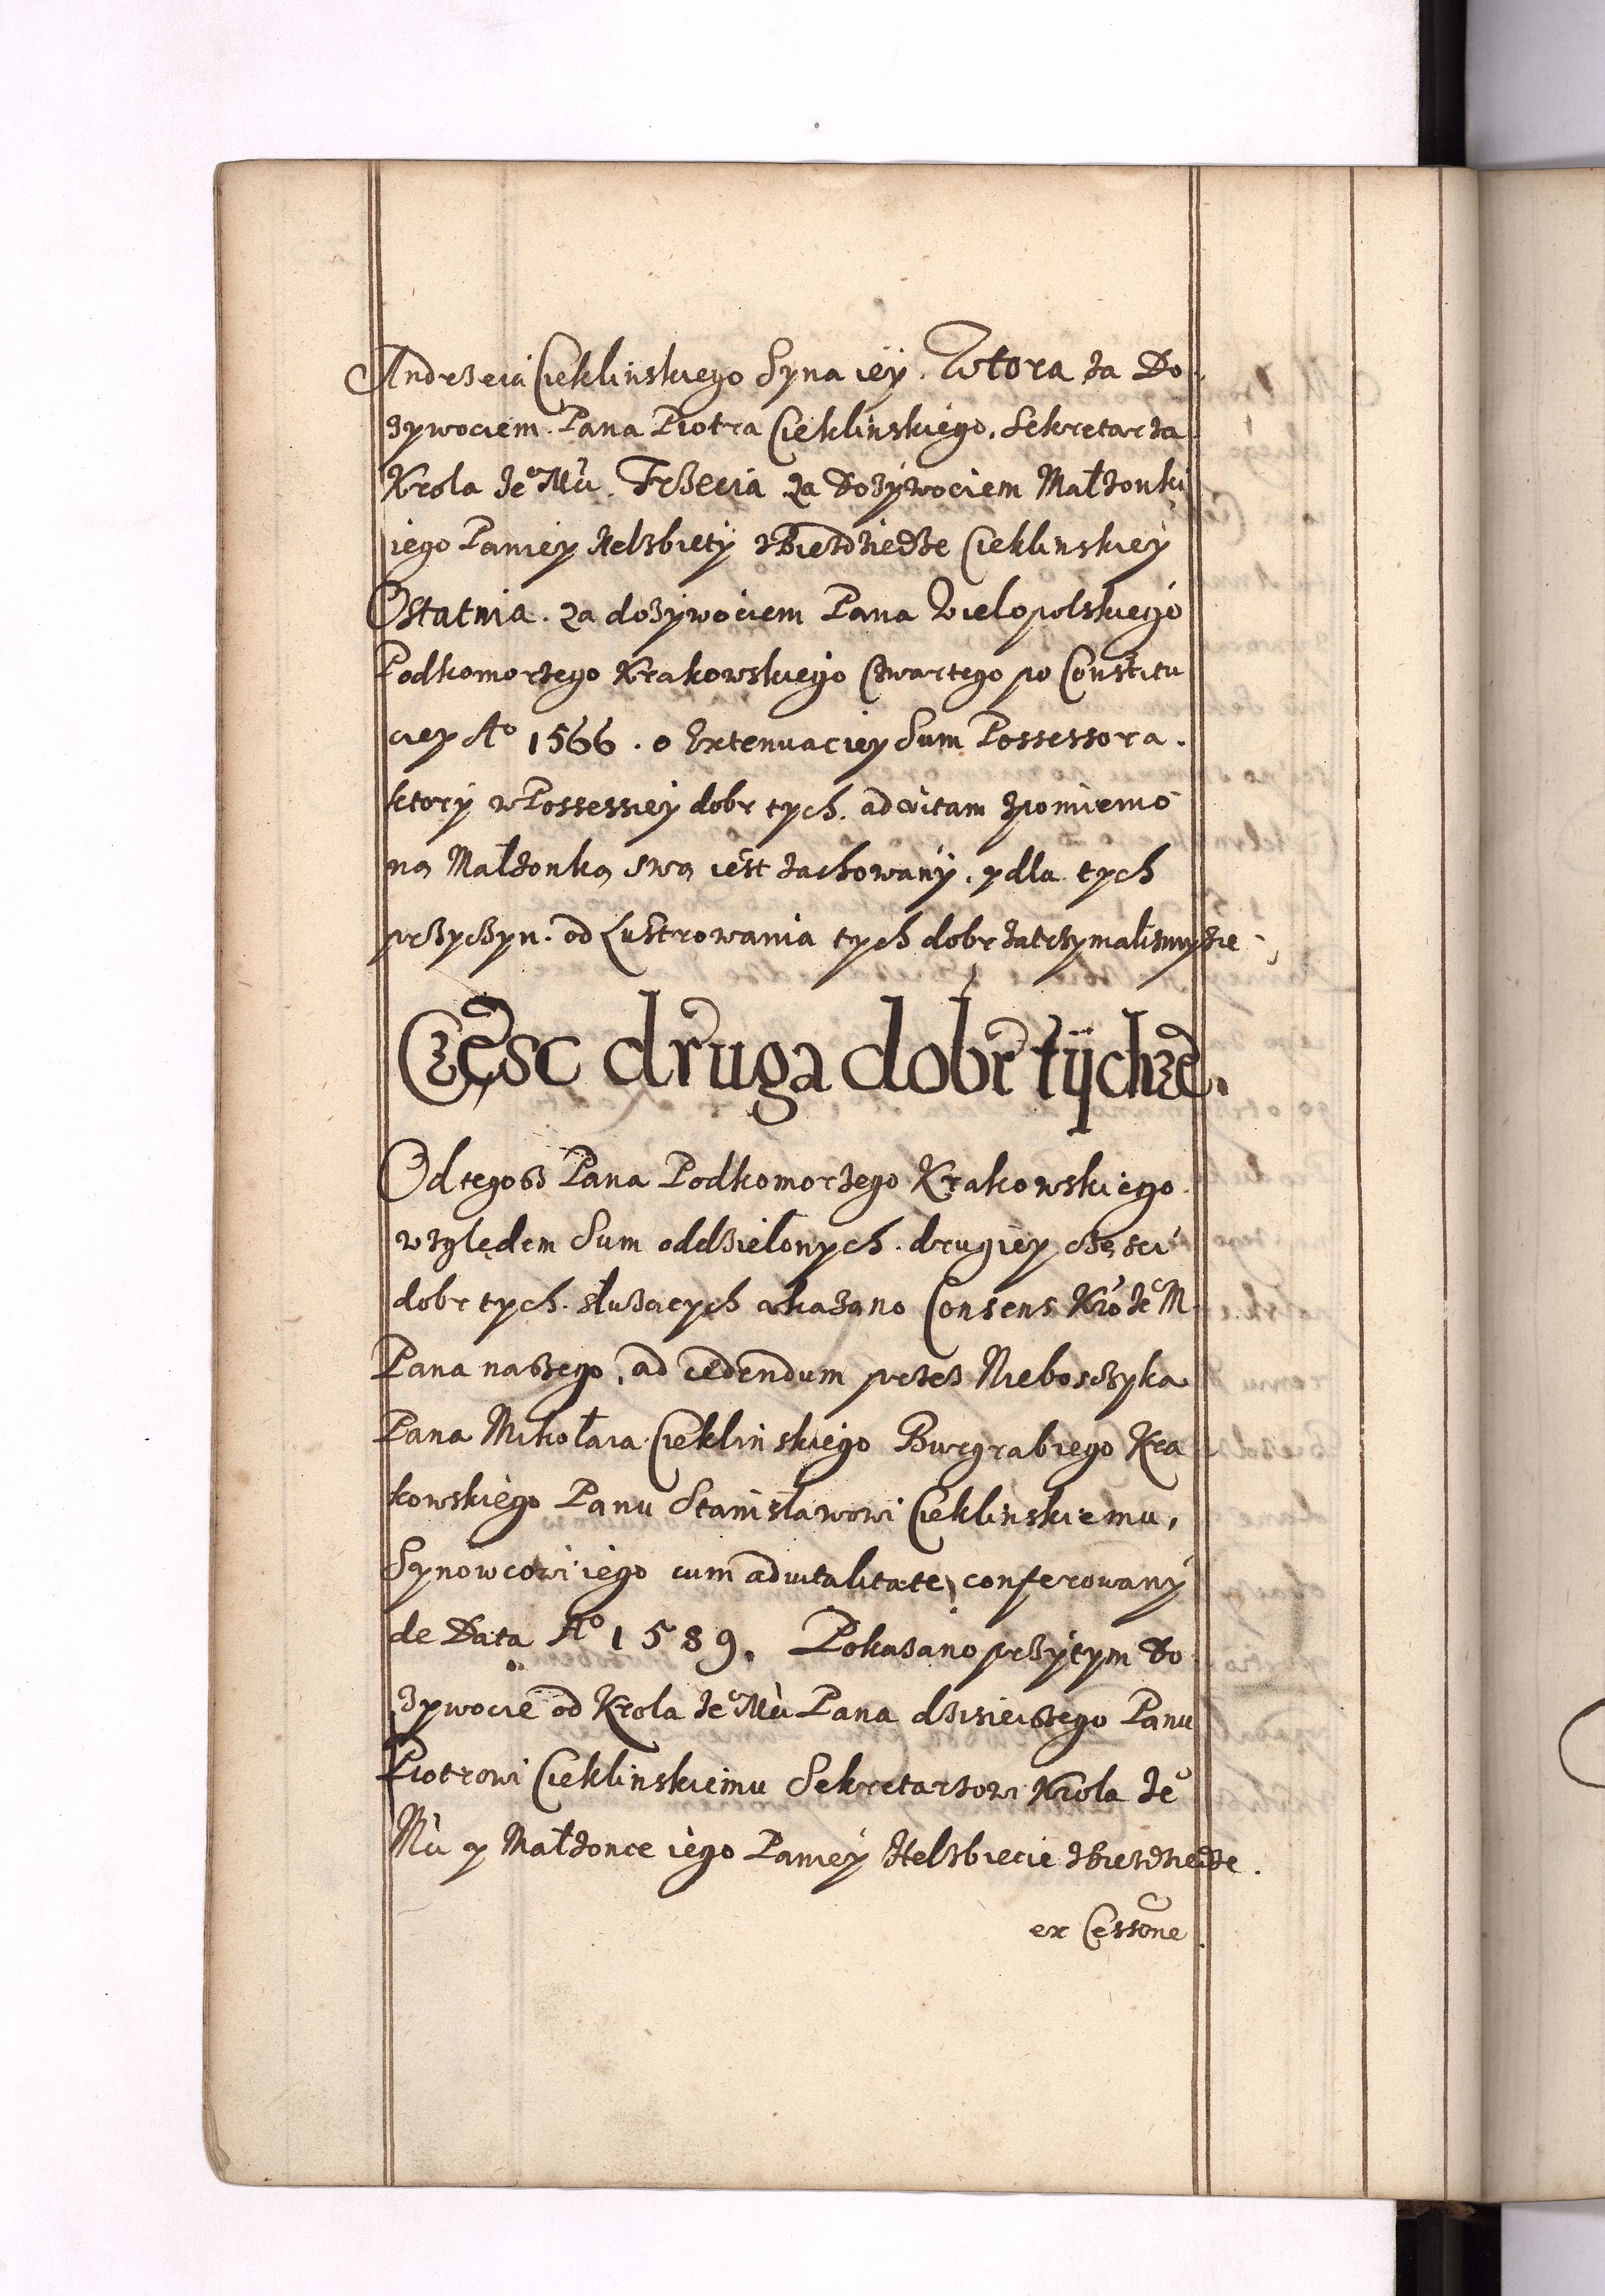 Andrzeia Cieklinskiego Syna iey. Wtora za Do
zywociem. Pana Piotra Cieklinskiego. Sekretarza
Krola Je° Mći. Trzecia za Dozywociem Małzonki
iego Paniey Helzbiety zBiezdziedze Cieklinskiey
Ostatnia. za dozywociem Pana Wielopolskiego
Podkomorzego Krakowskiego Czwartego po Constitu
ciey A° 1566. o Extenuaciey Sum Possessora.
ktory w Possessiey dobr tych. ad vitam zpomienio
ną Małzonką swą iest zachowany. y dla tych
przyczyn. od Lustrowania tych dobr zatrzymalismy sie
Część druga dobr tychze.
Od tegosz Pana Podkomorzego Krakowskiego.
względem Sum oddzielonych. drugiey częsci
dobr tych. słuzących ukazano Consens Kro Je° M.
Pana naszego, ad cedendum przez Nieboszczyka
Pana Mikołaia Cieklinskiego Burgrabiego Kra
kowskiego Panu Stanisławowi Cieklinskiemu,
Synowcowi iego cum advitalitate, conferowany
de Data A° 1589. Pokazano przytym Do
zywocie od Krola Je° Mći Pana dzisieiszego Panu
Piotrowi Cieklinskiemu Sekretarzowi Krola Je°
Mći y Małzonce iego Paniey Helzbiecie zbiezdziedze.
ex Cessione